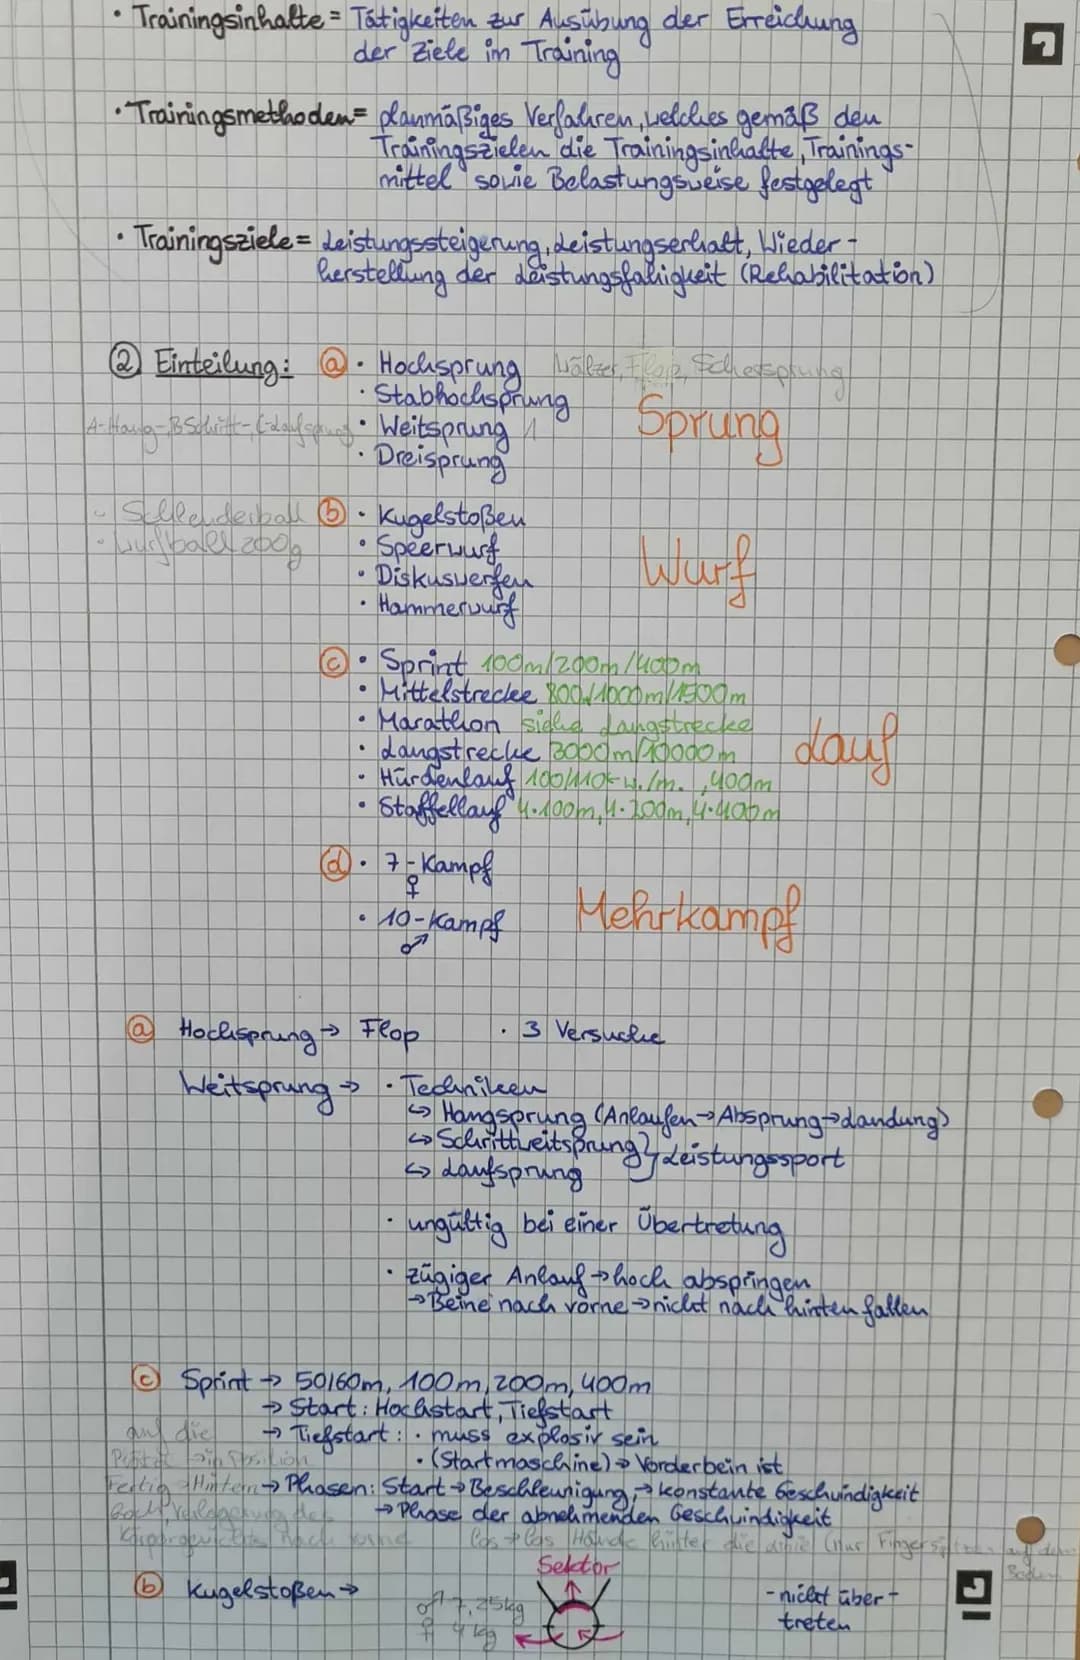 • Trainingsinhalte = Tätigkeiten zur Ausübung der Erreichung
der Ziele im Training
• Trainingsmethoden = planmäßiges Verfahren, welches gemäß den
Trainingszielen die Trainingsinhalte, Trainings-
mittel sowie Belastungsweise festgelegt
• Trainingsziele = Leistungssteigerung, Leistungserhalt, Wieder-
herstellung der Leistungsfähigkeit (Rehabilitation)
② Einteilung: ⓐ • Hochsprung Wälzer, Flop, Schersprung
• Stabhochsprung
Sprung
A-Hang-, B Schritt-, C-Laufsprung • Weitsprung
• Dreisprung
- Schleuderball ⓑ • Kugelstoßen
• Wurfball 200g • Speerwurf
Wurf
• Diskuswerfen
• Hammerwurf
ⓒ • Sprint 100m/200m/400m
• Mittelstrecke 800/1000m/1500m
• Marathon siehe Langstrecke
Lauf
• Langstrecke 3000m/10000m
• Hürdenlauf 100/110 w./m., 400m
• Staffellauf 4·100m, 4·200m, 4·400m
ⓓ • 7-Kampf
♀
Mehrkampf
• 10-Kampf
♂
ⓐ Hochsprung → Flop • 3 Versuche
Weitsprung → • Techniken
↳ Hangsprung (Anlaufen→Absprung→Landung)
↳ Schrittweitsprung } Leistungssport
↳ Laufsprung
• ungültig bei einer Übertretung
• zügiger Anlauf → hoch abspringen
→ Beine nach vorne → nicht nach hinten fallen
ⓒ Sprint → 50/60m, 100m, 200m, 400m
→ Start: Hochstart, Tiefstart
auf die → Tiefstart: • muss explosiv sein
Plätze → in Position • (Startmaschine) → Vorderbein ist
Fertig → Hintern → Phasen: Start → Beschleunigung, → konstante Geschwindigkeit
hoch, Verlagerung des → Phase der abnehmenden Geschwindigkeit
Körpergewichtes nach vorne Los → Los Hände hinter die Linie (nur Fingerspitzen auf dem
Boden
Sektor
ⓑ Kugelstoßen → ♂ 7,25kg - nicht über-
♀ 4kg treten